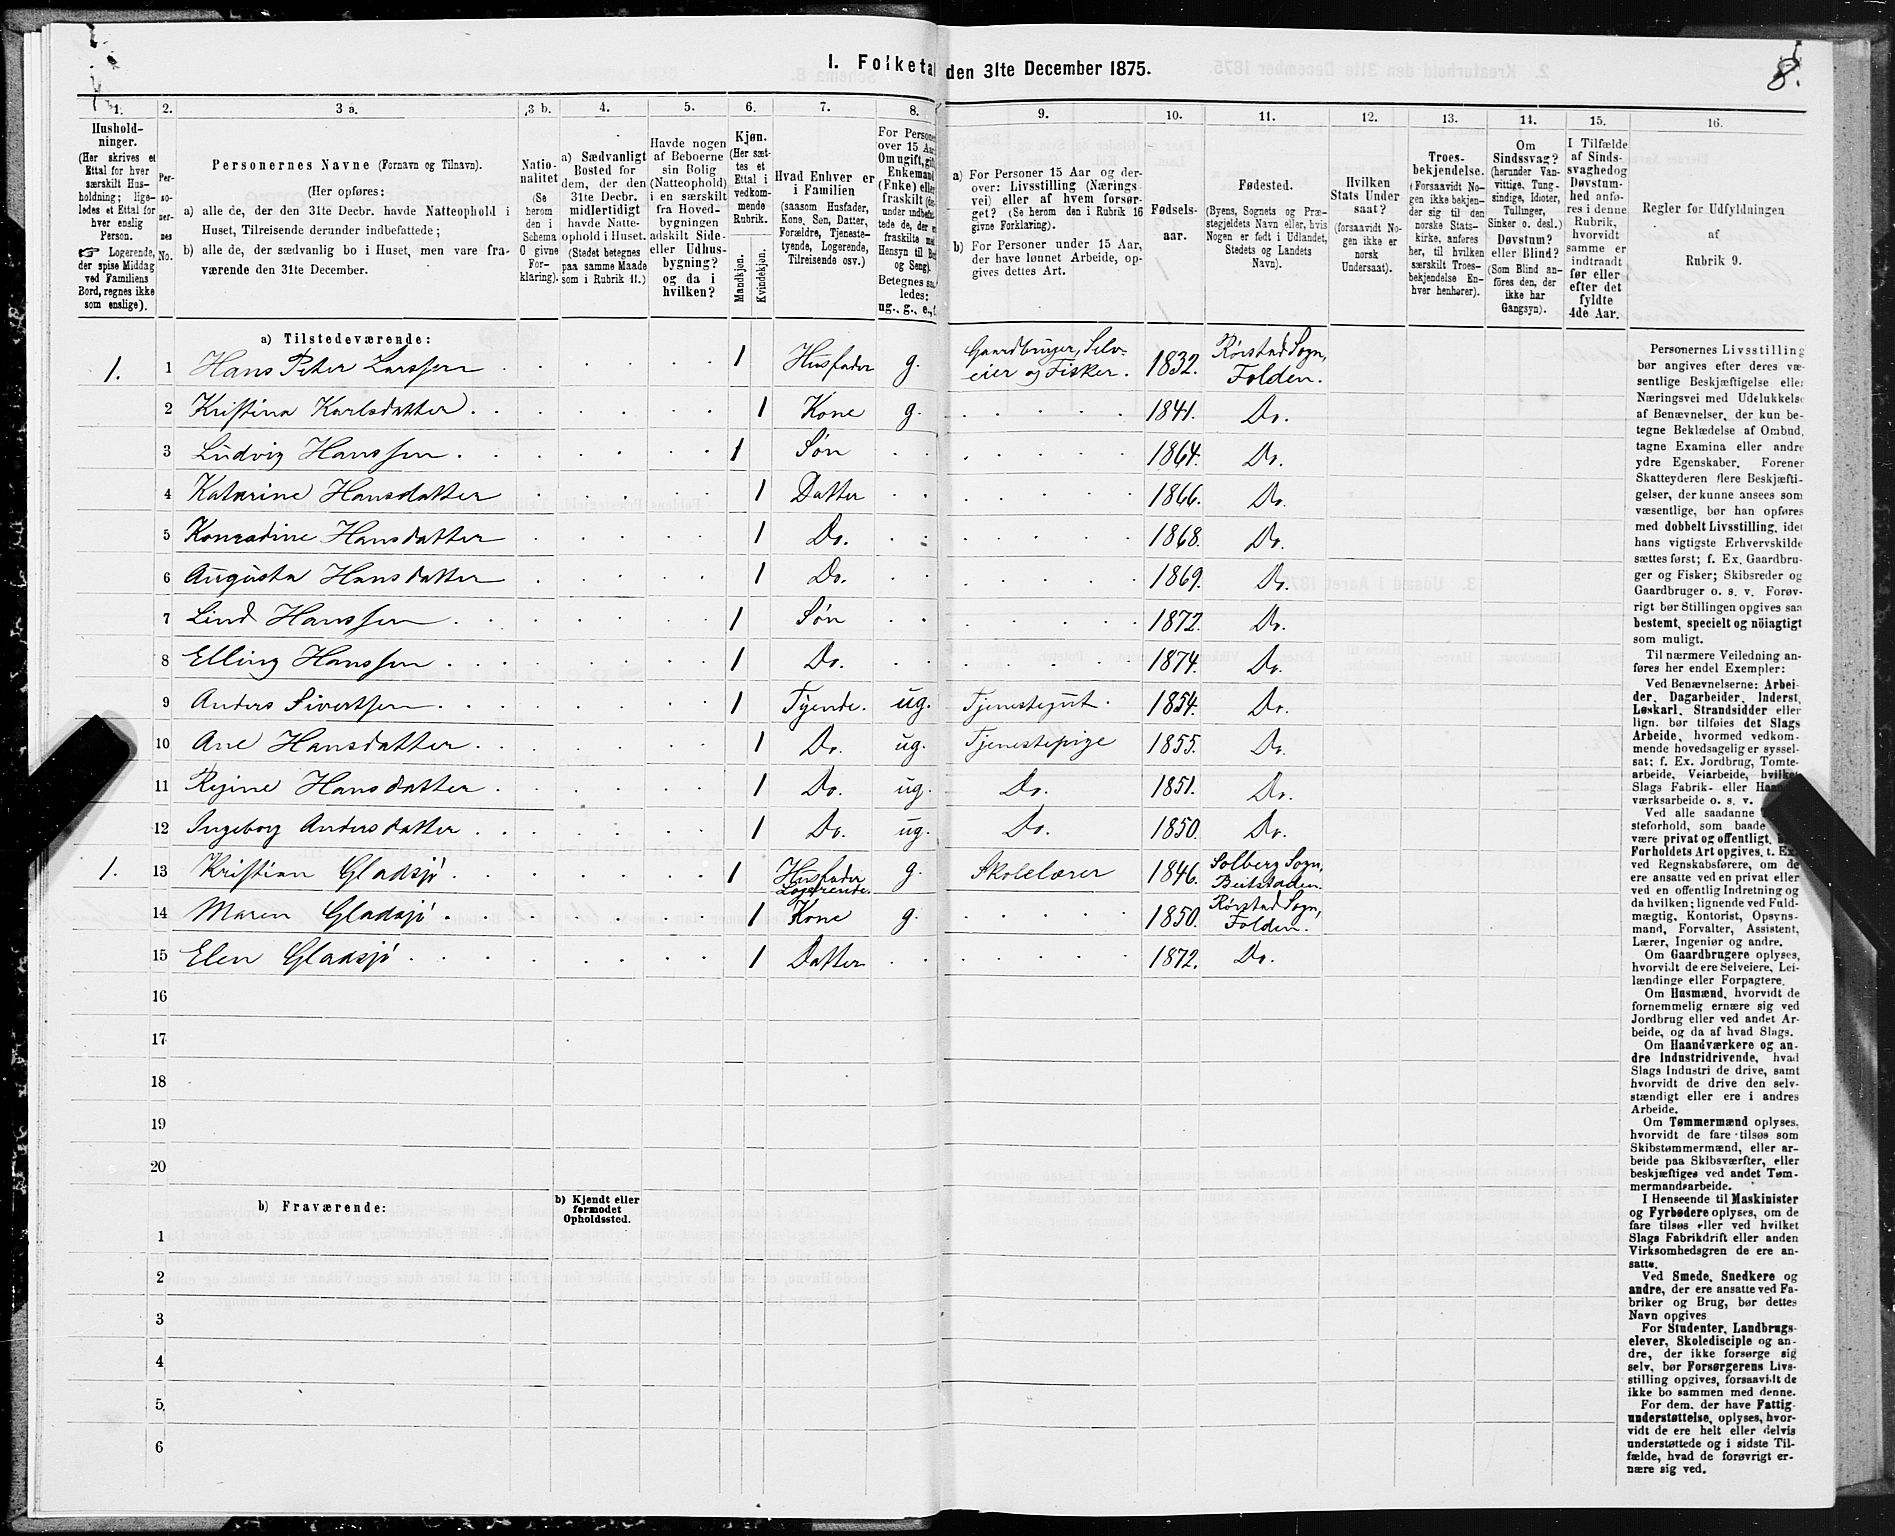 8.
I. Folketal den 31te December 1875.
1. 2. 3 a. 3 b. 4. 5. 6. 7. 8. 9. 10. 11. 12. 13. 14. 15. 16.
Hushold-
ninger.
(Her skrives et
Ettal for hver
særskilt Hus-
holdning; lige-
ledes et Ettal for
hver enslig
Person.
☞ Logerende,
der spise Middag
ved Familiens
Bord, regnes ikke
som enslige).
Per-
so-
ner-
nes
No.
Personernes Navne (Fornavn og Tilnavn).
(Her opføres:
a) alle de, der den 31te Decbr. havde Natteophold i
Huset, Tilreisende derunder indbefattede;
b) alle de, der sædvanlig bo i Huset, men vare fra-
værende den 31te December.
Natio-
nalitet
(Se
herom
den i
Schema
6 givne
For-
klaring).
a) Sædvanligt
Bosted for
dem, der den
31te Decbr.
midlertidigt
havde Natte-
ophold i Huset.
(Stedet betegnes
paa samme Maade
som i Rubrik 11.)
Havde nogen
af Beboerne
sin Bolig
(Natteophold)
i en særskilt
fra Hoved-
bygningen
adskilt Side-
eller Udhus-
bygning?
og da i
hvilken?
Kjøn.
(Her sæt-
tes et
Ettal i
vedkom-
mende
Rubrik.
Mandkjøn.
Kvindekjøn.
Hvad Enhver er
i Familien
(saasom Husfader,
Kone, Søn, Datter,
Forældre, Tjeneste-
tyende, Logerende,
Tilreisende osv.)
For Persone
over 15 Aar
Om ugift, gift,
Enkemand
(Enke) eller
fraskilt
under indbefat-
tede de, der
fraskilte med
Hensyn til Bord
og Seng).
Betegnes saa-
ledes:
ug., g., e.,
a) For Personer 15 Aar og der-
over: Livsstilling (Nærings-
vei) eller af hvem forsør-
get? (Se herom den i Rubrik 16
givne Forklaring).
b) For Personer under 15 Aar,
der have lønnet Arbeide, op-
gives dettes Art.
Fødsels-
aar.
Fødested.
(Byens, Sognets og Præ-
stegjeldets Navn eller, hvis
Nogen er født i Udlandet,
Stedets og Landets
Navn).
Hvilken
Stats Under
saat?
(forsaavidt No-
gen ikke er
norsk
Undersaat).
Troes-
bekjendelse.
(Forsaavidt No-
gen ikke bekjen-
der sig til den
norske Stats-
kirke, anføres
her, til hvilken
særskilt Troes-
bekjendelse En-
hver henhører).
Om
Sindssvag?
(herunder Van-
vittige, Tung-
sindige, Idioter,
Tullinger,
Sinker o. desl.)
Døvstum?
eller Blind?
(Som Blind an-
føres den, der
ikke har
Gangsyn).
I Tilfælde
af Sinds-
svaghed og
Døvstum-
hed anfø-
res i denne
Rubrik,
hvorvidt
samme er
indtraadt
før eller
efter det
fyldte
4de Aar.
Regler for Udfyldningen
af
Rubrik 9.
a) Tilstedeværende:
1. 1 Hans Peter Larssen 1 Husfader g. Gaardbruger, Selv-eier og Fisker. 1832. Rørstad Sogn, Folden.
2 Kristina Karlsdatter 1 Kone g. 1841. Do.
3 Ludvig Hanssen 1 Søn 1864. Do.
4 Katrine Hansdatter 1 Datter 1866. Do.
5 Konradine Hansdatter 1 Do. 1868. Do.
6 Augusta Hansdatter 1 Do. 1869. Do.
7 Lind Hanssen 1 Søn 1872. Do.
8 Elling Hanssen 1 Do. 1874. Do.
9 Anders Sivertsen 1 Tyende. ug. Tjenestegut. 1854. Do.
10 Ane Hansdatter 1 Do. ug. Tjenestepige 1855. Do.
11 Regine Hansdatter 1 Do. ug. Do. 1851. Do.
12 Ingeborg Andersdatter 1 Do. ug. Do. 1850. Do.
1. 13 Kristian Gladsjø 1 Husfader Logerende. g. Skolelærer 1846. Solberg Sogn, Beitstaden.
14 Maren Gladsjø 1 Kone g. 1850. Rørstad Sogn, Folden.
15 Elen Gladsjø 1 Datter 1872. Do.
16
17
18
19
20
b) Fraværende:
b) Kjendt eller
formodet
Opholdssted.
1
2
3
4
5
6
Personernes Livsstilling
bør angives efter deres væ-
sentlige Beskjæftigelse eller
Næringsvei med Udelukkelse
af Benævnelser, der kun be-
tegne Beklædelse af Ombud,
tagne Examina eller andre
ydre Egenskaber. Forener
Skatteyderen flere Beskjæfti-
gelser, der kunne ansees som
væsentlige, bør han opføres
med dobbelt Livsstilling, idet
hans vigtigste Erhvervskilde
sættes først; f. Ex. Gaardbru-
ger og Fisker; Skibsreder og
Gaardbruger o. s. v. Forøv-
rigt bør Stillingen opgives saa
bestemt, specielt og nöiagtigt
som muligt.
Til nærmere Veiledning an-
føres her endel Exempler:
Ved Benævnelserne: Arbei-
der, Dagarbeider, Inderst,
Løskarl, Strandsidder eller
lign. bør tilføies det Slags
Arbeide, hvormed vedkom-
mende hovedsagelig er syssel-
sat; f. Ex. Jordbrug, Tomte-
arbeide, Veiarbeide, hvilket
Slags Fabrik- eller Haand-
værksarbeide o. s. v.
Ved alle saadanne
steforhold, som baade
være privat og offentligt,
Forholdets Art opgives. t. Ex.
ved Regnskabsførere, om de
ere ansatte ved en privat eller
ved en offentlig Indretning og
da hvilken; lignende ved Fuld-
mægtig, Kontorist, Opsyns-
mand, Forvalter, Assistent,
Lærer, Ingeniør og andre.
Om Gaardbrugere oplyses,
hvorvidt de ere Selveiere, Lei-
lændinge eller Forpagtere.
Om Husmænd, hvorvidt de
fornemmelig ernære sig ved
Jordbrug eller ved andet Ar-
beide, og da af hvad Slags.
Om Haandværkere og an-
dre Industridrivende, hvad
Slags Industri de drive, samt
hvorvidt de drive den selv-
stændigt eller ere i andres
Arbeide.
Om Tømmermænd oplyses,
hvorvidt de fare tilsøs som
Skibstømmermænd, eller ar-
beide paa Skibsværfter, eller
beskjæftiges ved andet Tøm-
mermandsarbeide.
I Henseende til Maskinister
og Fyrbødere oplyses, om de
fare tilsøs eller ved hvilket
Slags Fabrikdrift eller anden
Virksomhedsgren de ere an-
satte.
Ved Smede, Snedkere og
andre, der ere ansatte ved Fa-
briker og Brug, bør dettes
Navn opgives
For Studenter, Landbrugs-
elever, Skoledisciple og an-
dre, der ikke forsørge sig
selv, bør Forsørgerens Livs-
stilling opgives, forsaavidt de
ikke bo sammen med denne.
For dem, der have Fattig-
understøttelse, oplyses, hvor-
vidt de ere helt eller delvis
understøttede og i sidste Til-
fælde, hvad de forøvrigt er-
nære sig ved.